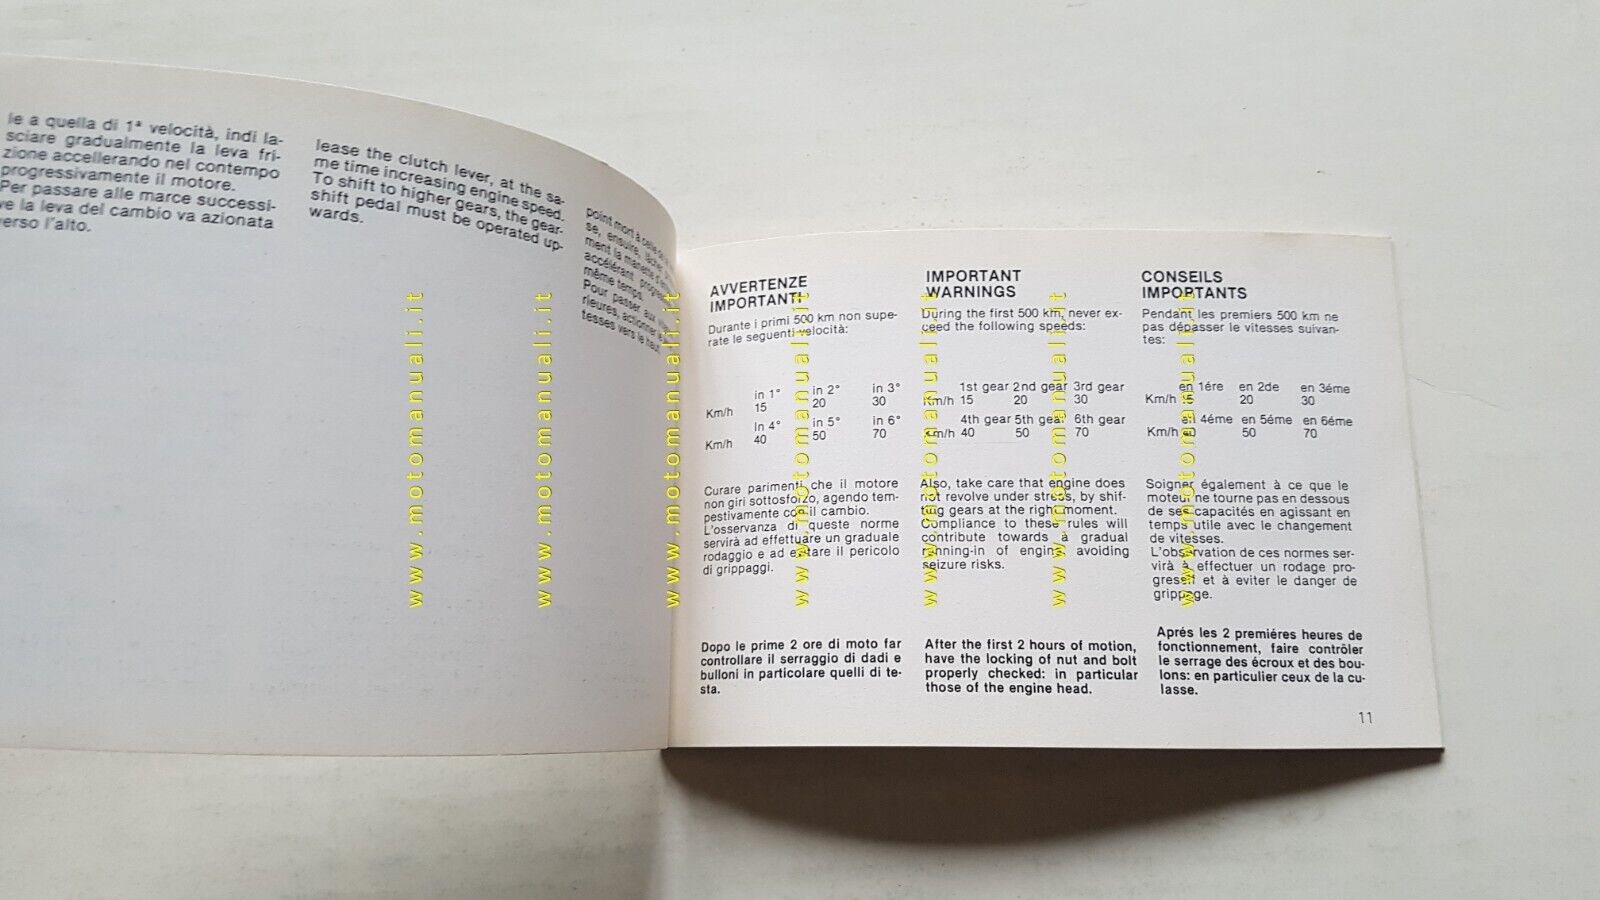 le a quella di 1ª velocità, indi la-
sciare gradualmente la leva fri-
zione accellerando nel contempo
progressivamente il motore.
Per passare alle marce successi-
ve la leva del cambio va azionata
verso l'alto.
lease the clutch lever, at the sa-
me time increasing engine speed.
To shift to higher gears, the gear-
shift pedal must be operated up-
wards.
point mort à celle de
se, ensuire, lâcher
ment la manette d'em
accélérant progres
même temps.
Pour passer aux vites
rieures, actionner
tesses vers le haut.
AVVERTENZE
IMPORTANTI
Durante i primi 500 km non supe-
rate le seguenti velocità:
in 1° in 2° in 3°
Km/h 15 20 30
in 4° in 5° in 6°
Km/h 40 50 70
Curare parimenti che il motore
non giri sottosforzo, agendo tem-
pestivamente con il cambio.
L'osservanza di queste norme
servirà ad effettuare un graduale
rodaggio e ad evitare il pericolo
di grippaggi.
Dopo le prime 2 ore di moto far
controllare il serraggio di dadi e
bulloni in particolare quelli di te-
sta.
IMPORTANT
WARNINGS
During the first 500 km, never ex-
ceed the following speeds:
1st gear 2nd gear 3rd gear
Km/h 15 20 30
4th gear 5th gear 6th gear
Km/h 40 50 70
Also, take care that engine does
not revolve under stress, by shif-
ting gears at the right moment.
Compliance to these rules will
contribute towards a gradual
running-in of engine avoiding
seizure risks.
After the first 2 hours of motion,
have the locking of nut and bolt
properly checked: in particular
those of the engine head.
CONSEILS
IMPORTANTS
Pendant les premiers 500 km ne
pas dépasser le vitesses suivan-
tes:
en 1ére en 2de en 3éme
Km/h 15 20 30
en 4éme en 5éme en 6éme
Km/h 40 50 70
Soigner également à ce que le
moteur ne tourne pas en dessous
de ses capacités en agissant en
temps utile avec le changement
de vitesses.
L'observation de ces normes ser-
virà à effectuer un rodage pro-
gressif et à eviter le danger de
grippage.
Aprés les 2 premiéres heures de
fonctionnement, faire contrôler
le serrage des écroux et des bou-
lons: en particulier ceux de la cu-
lasse.
11
www.motomanuali.it
www.motomanuali.it
www.motomanuali.it
www.motomanuali.it
www.motomanuali.it
www.motomanuali.it
www.motomanuali.it